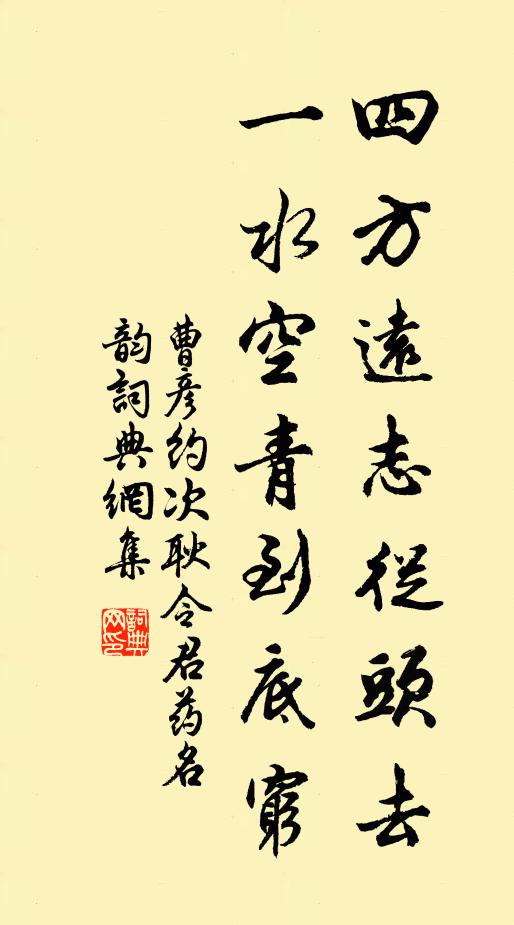 四方遠志從頭去
一水空青到底窮
曹彥約次耿令君药名
韵詞典網集
詞典网印